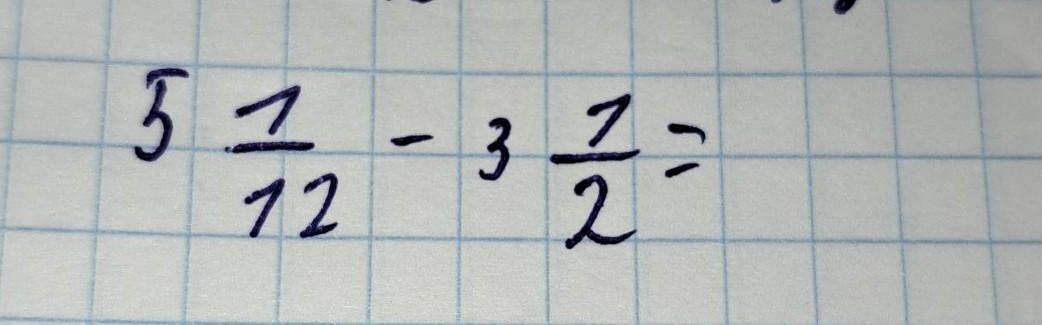 5 1/12 - 3 1/2 =